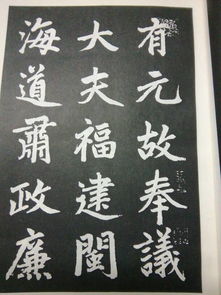 有元故奉議
大夫福建閩
海道肅政廉